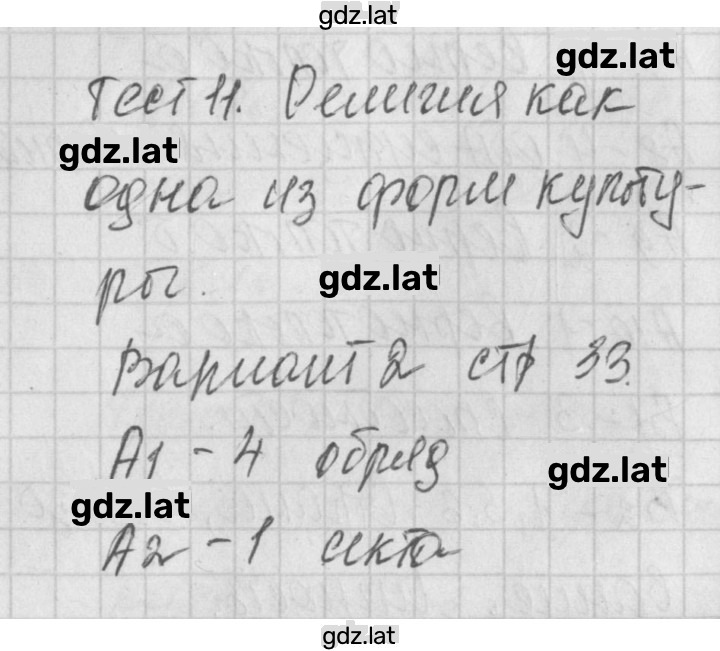 gdz.lat
gdz.lat
Тест 11. Религия как
gdz.lat
одна из форм культу-
gdz.lat
ры.
Вариант 2 стр 33.
А1 - 4 обряд
gdz.lat
gdz.lat
А2 - 1 секта
gdz.lat